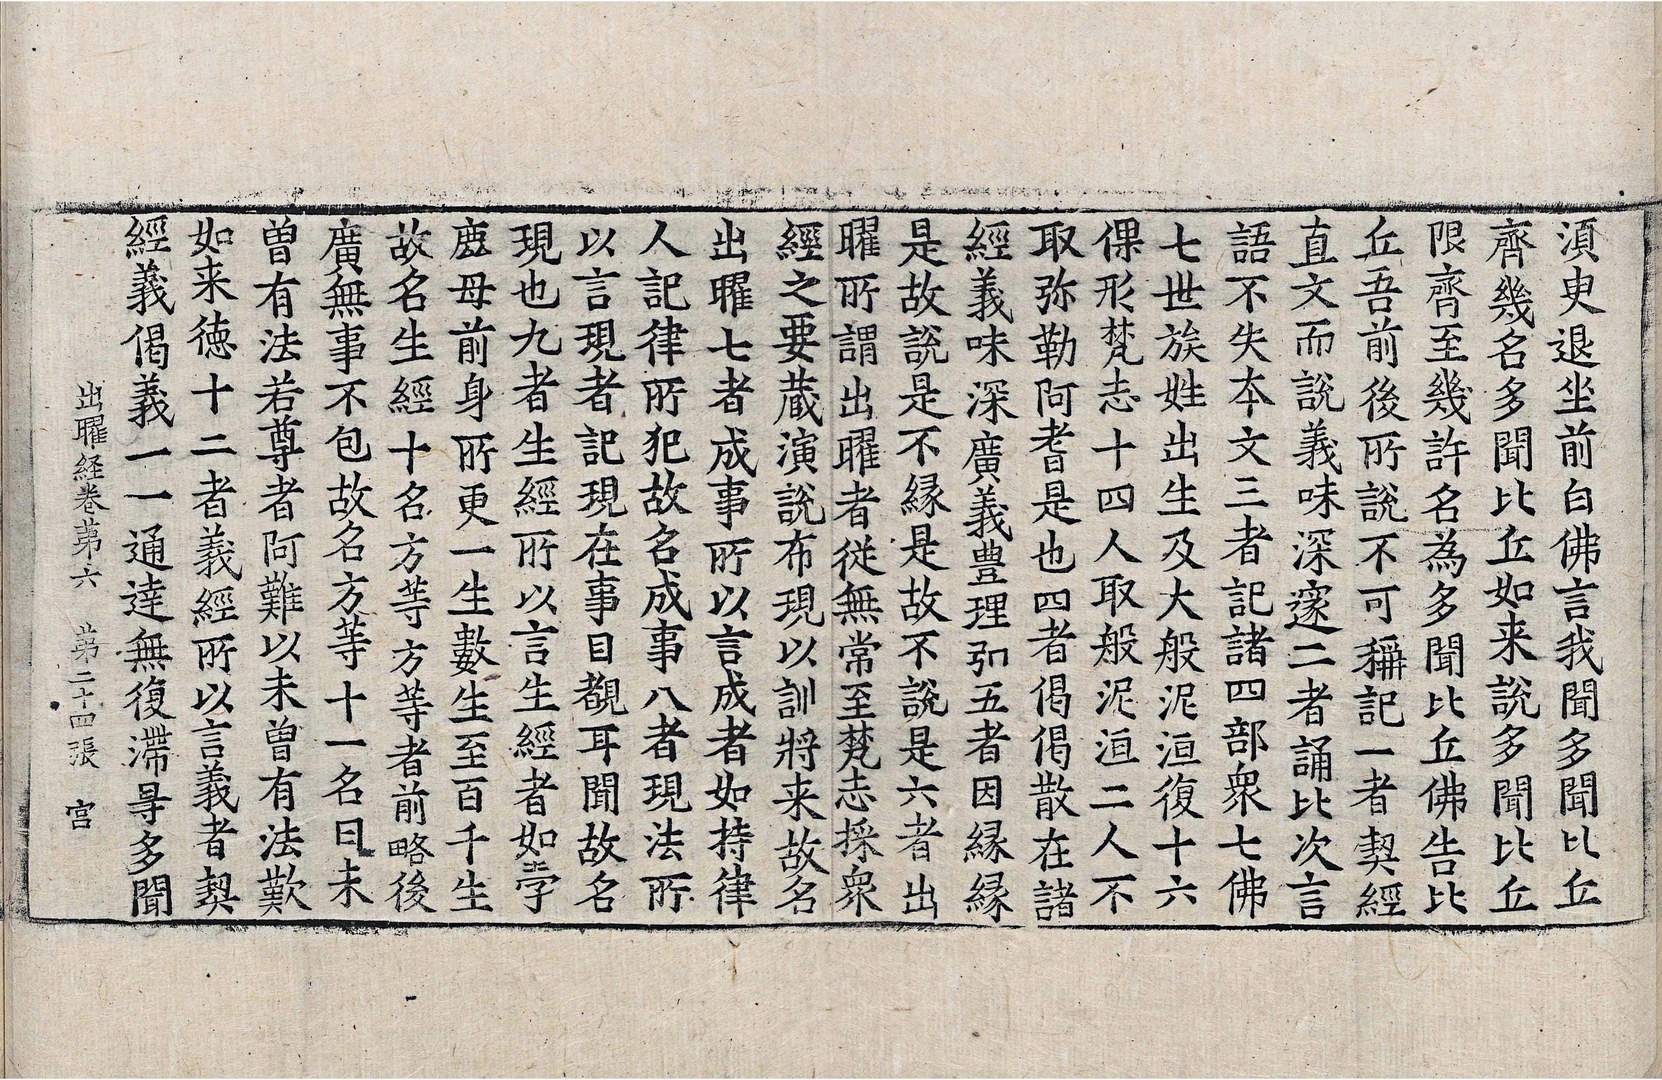 湏臾退坐前白佛言我聞多聞比丘
齊幾名多聞比丘如来說多聞比丘
限齊至幾許名為多聞比丘佛告比
丘吾前後所說不可稱記一者契經
直文而說義味深邃二者誦比次言
語不失本文三者記諸四部衆七佛
七世族姓出生及大般泥洹復十六
倮形梵志十四人取般泥洹二人不
取弥勒阿耆是也四者偈偈散在諸
經義味深廣義豊理弘五者因縁縁
是故說是不縁是故不說是六者出
曜所謂出曜者従無常至梵志採衆
經之要蔵演說布現以訓將来故名
出曜七者成事所以言成者如持律
人記律所犯故名成事八者現法所
以言現者記現在事目覩耳聞故名
現也九者生經所以言生經者如孛
鹿母前身所更一生數生至百千生
故名生經十名方等方等者前略後
廣無事不包故名方等十一名曰未
曽有法若尊者阿難以未曽有法歎
如来徳十二者義經所以言義者契
經義偈義一一通達無復滯㝵多聞
出曜経巻苐六 苐二十四張 宫